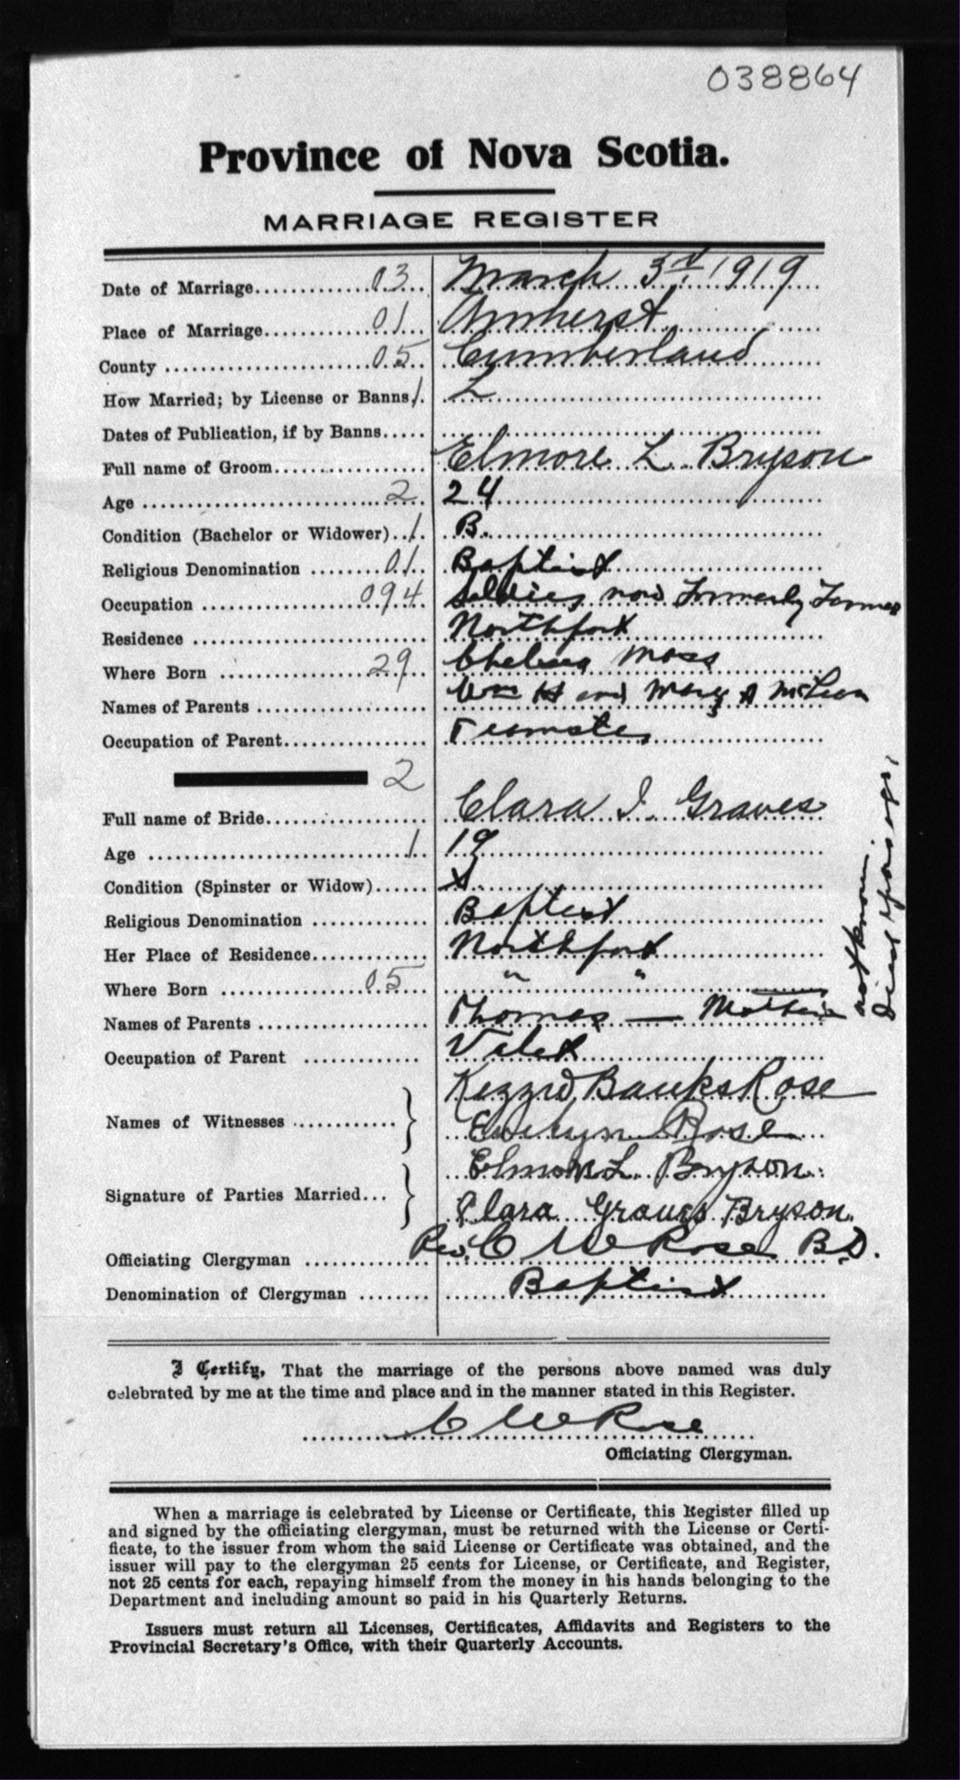 038864
Province of Nova Scotia.
MARRIAGE REGISTER
Date of Marriage............03.. March 3rd 1919
Place of Marriage............01.. Amherst
County ......................05.. Cumberland
How Married; by License or Banns 1. L
Dates of Publication, if by Banns.....
Full name of Groom................ Elmore L. Bryson
Age ........................2.. 24
Condition (Bachelor or Widower)..1. B.
Religious Denomination ........01.. Baptist
Occupation ................094.. Soldier, now Formerly Farmer
Residence ........................ Northport
Where Born ................29. Chelsea Mass
Names of Parents .................. Wm H and Mary A McLean
Occupation of Parent................ Teamster
2
Full name of Bride................ Clara I. Graves
Age ........................1.. 19
Condition (Spinster or Widow)...... S.
Religious Denomination ............ Baptist
Her Place of Residence............. Northport
Where Born ................05.. " "
Names of Parents .................. Thomas — Mother not known
Died years ago.
Occupation of Parent ............
Names of Witnesses ............ Banks Rose
Evelyn Rose
Signature of Parties Married... Elmore L Bryson.
Clara Graves Bryson.
Officiating Clergyman ............ Rev. C W Rose B.D.
Denomination of Clergyman ........ Baptist
I Certify, That the marriage of the persons above named was duly
celebrated by me at the time and place and in the manner stated in this Register.
C W Rose
Officiating Clergyman.
When a marriage is celebrated by License or Certificate, this Register filled up
and signed by the officiating clergyman, must be returned with the License or Certi-
ficate, to the issuer from whom the said License or Certificate was obtained, and the
issuer will pay to the clergyman 25 cents for License, or Certificate, and Register,
not 25 cents for each, repaying himself from the money in his hands belonging to the
Department and including amount so paid in his Quarterly Returns.
Issuers must return all Licenses, Certificates, Affidavits and Registers to the
Provincial Secretary's Office, with their Quarterly Accounts.